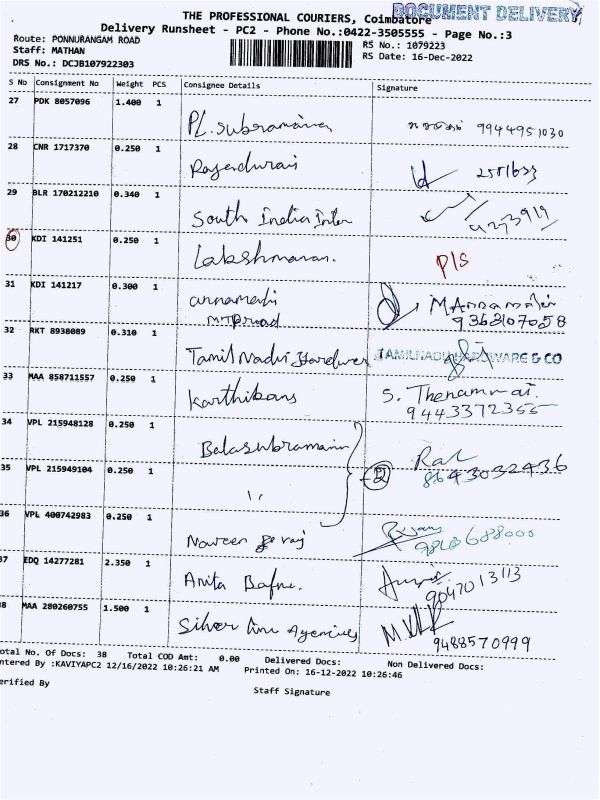 THE PROFESSIONAL COURIERS, Coimbatore
DOCUMENT DELIVERY
Delivery Runsheet - PC2 - Phone No.:0422-3505555 - Page No.:3
Route: PONNURANGAM ROAD
RS No.: 1079223
Staff: MATHAN
RS Date: 16-Dec-2022
DRS No.: DCJB107922303
S No Consignment No Weight PCS Consignee Details Signature
27 PDK 8057096 1.400 1 PL. Subramanian 9944951030
28 CNR 1717370 0.250 1 Rajendurai
29 BLR 170212210 0.340 1 South India Inter
30 KDI 141251 0.250 1 Lakshmanan. P/S
31 KDI 141217 0.300 1 annamalai M Annamalai
MTP road 9363107058
32 RKT 8938089 0.310 1 Tamil Nadu Hardware TAMILNADU HARDWARE & CO
33 MAA 858711557 0.250 1 Karthikans S. Thenammai.
9443372355
34 VPL 215948128 0.250 1 Balasubramanian
35 VPL 215949104 0.250 1 ,, 2 8643032436
36 VPL 400742983 0.250 1 Naveen
37 EDQ 14277281 2.350 1 Anita Bafna. 9047013113
38 MAA 280260755 1.500 1 Silver line Agencies
9488570999
Total No. Of Docs: 38 Total COD Amt: 0.00 Delivered Docs: Non Delivered Docs:
Entered By :KAVIYAPC2 12/16/2022 10:26:21 AM Printed On: 16-12-2022 10:26:46
Verified By
Staff Signature